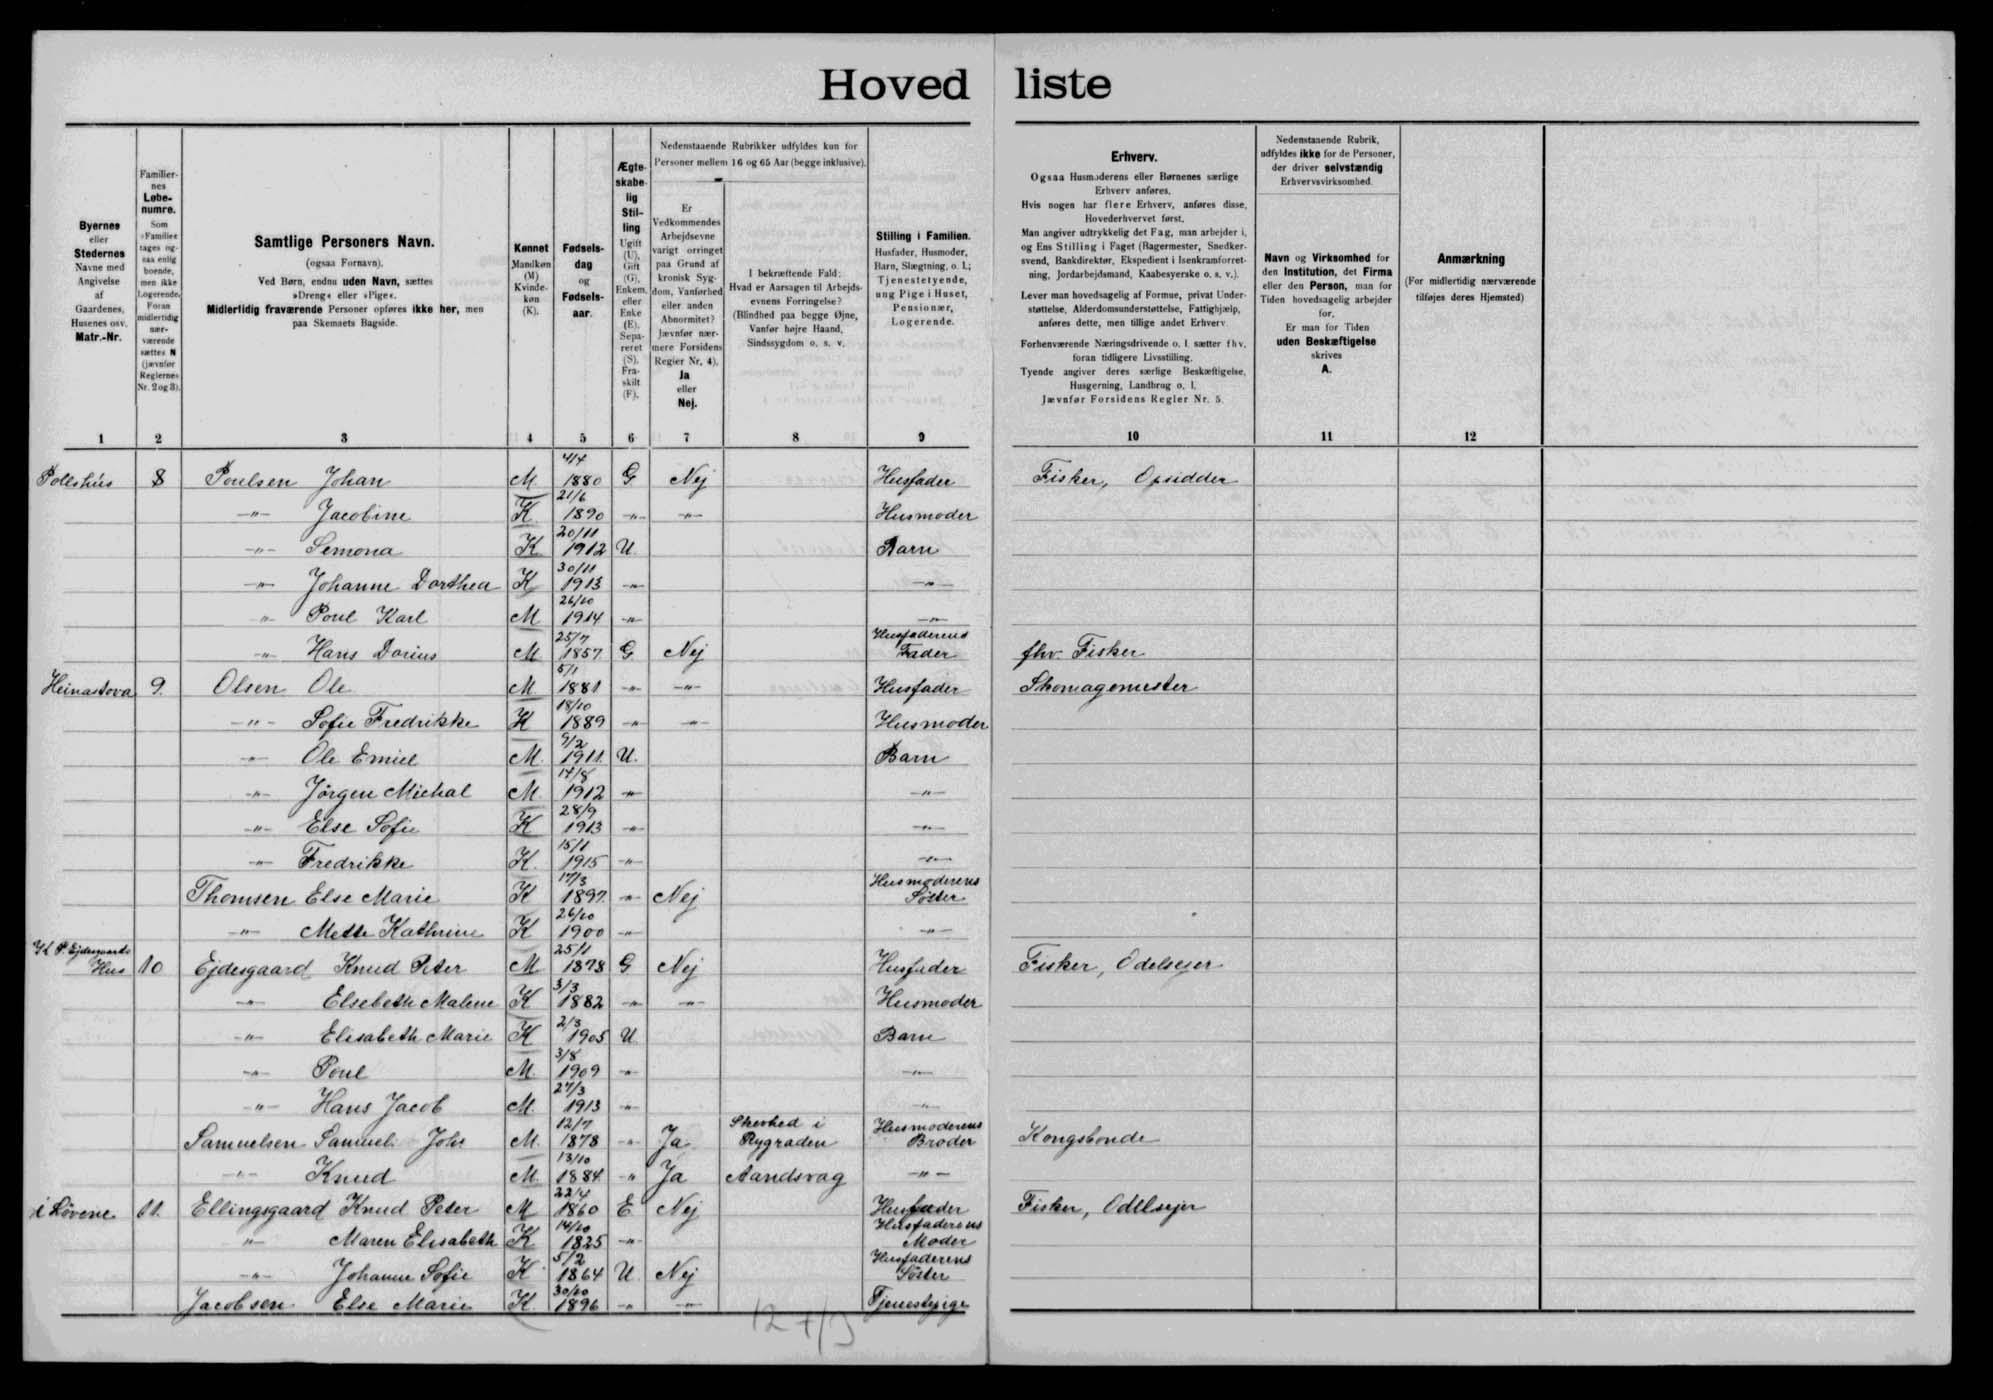 Hoved liste
Byernes
eller
Stedernes
Navne med
Angivelse
af
Gaardenes,
Husenes osv.
Matr.-Nr.
Familier-
nes
Løbe-
numre.
Som
»Familie«
tages og-
saa enlig
boende,
men ikke
Logerende.
Foran
midlertidig
nær-
værende
sættes N
(jævnfør
Reglernes
Nr. 2 og 3).
Samtlige Personers Navn.
(ogsaa Fornavn).
Ved Børn, endnu uden Navn, sættes
»Dreng« eller »Pige«.
Midlertidig fraværende Personer opføres ikke her, men
paa Skemaets Bagside.
Kønnet
Mandkøn
(M)
Kvinde-
køn
(K).
Fødsels-
dag
og
Fødsels-
aar.
Ægte-
skabe-
lig
Stil-
ling
Ugift
(U),
Gift
(G),
Enkem.
eller
Enke
(E),
Sepa-
reret
(S),
Fra-
skilt
(F).
Nedenstaaende Rubrikker udfyldes kun for
Personer mellem 16 og 65 Aar (begge inklusive).
Er
Vedkommendes
Arbejdsevne
varigt forringet
paa Grund af
kronisk Syg-
dom, Vanførhed
eller anden
Abnormitet?
Jævnfør nær-
mere Forsidens
Regler Nr. 4).
Ja
eller
Nej.
I bekræftende Fald:
Hvad er Aarsagen til Arbejds-
evnens Forringelse?
(Blindhed paa begge Øjne,
Vanfør højre Haand,
Sindssygdom o. s. v.
Stilling i Familien.
Husfader, Husmoder,
Barn, Slægtning, o. l.;
Tjenestetyende,
ung Pige i Huset,
Pensionær,
Logerende.
Erhverv.
Ogsaa Husmoderens eller Børnenes særlige
Erhverv anføres.
Hvis nogen har flere Erhverv, anføres disse,
Hovederhvervet først.
Man angiver udtrykkelig det Fag, man arbejder i,
og Ens Stilling i Faget (Bagermester, Snedker-
svend, Bankdirektør, Ekspedient i Isenkramforret-
ning, Jordarbejdsmand, Kaabesyerske o. s. v.).
Lever man hovedsagelig af Formue, privat Under-
støttelse, Alderdomsunderstøttelse, Fattighjælp,
anføres dette, men tillige andet Erhverv.
Forhenværende Næringsdrivende o. l. sætter fhv.
foran tidligere Livsstilling.
Tyende angiver deres særlige Beskæftigelse,
Husgerning, Landbrug o. l.
Jævnfør Forsidens Regler Nr. 5.
Nedenstaaende Rubrik,
udfyldes ikke for de Personer,
der driver selvstændig
Erhvervsvirksomhed.
Navn og Virksomhed for
den Institution, det Firma
eller den Person, man for
Tiden hovedsagelig arbejder
for.
Er man for Tiden
uden Beskæftigelse
skrives
A.
Anmærkning
(For midlertidig nærværende
tilføjes deres Hjemsted)
1 2 3 4 5 6 7 8 9 10 11 12
8 Poulsen Johan M. 4/4 1880 G Nej Husfader Fisker, Opsidder
-"- Jacobine K. 21/6 1890 -"- -"- Husmoder
-"- Semona K 20/11 1912 U. Barn
-"- Johanne Dorthea K 30/11 1913 -"- -"-
-"- Poul Karl M 26/10 1914 -"- -"-
-"- Hans Darius M 25/7 1857 G Nej Husfaderens Fader fhv. Fisker
Heinastova 9. Olsen Ole M. 5/1 1881 -"- -"- Husfader Skomagemester
-"- Sofie Fredrikke K 18/10 1889 -"- -"- Husmoder
-"- Ole Emiel M. 9/2 1911. U. Barn
-"- Jörgen Michal M. 14/8 1912 -"- -"-
-"- Else Sofie K 28/9 1913 -"- -"-
-"- Fredrikke K. 15/1 1915 -"- -"-
Thomsen Else Marie K 17/3 1897. -"- Nej Husmoderens Söster
-"- Mette Kathrine K 26/10 1900 -"- -"-
K. P. Ejdesgaards Hus 10 Ejdesgaard Knud Peter M 25/1 1878 G Nej Husfader Fisker, Odelsejer
-"- Elsebeth Malene K 3/3 1882 -"- -"- Husmoder
-"- Elisabeth Marie K 2/3 1905 U Barn
-"- Poul M. 3/8 1909 -"- -"-
-"- Hans Jacob M. 27/3 1913 -"- -"-
Samuelsen Samuel Johs M. 12/7 1878 -"- Ja Skevhed i Rygraden Husmoderens Broder Kongsbonde
-"- Knud M. 13/10 1884. -"- Ja Aandsvag -"-
i Lövene 11. Ellingsgaard Knud Peter M 22/4 1860 E Nej Husfader Fisker, Odelsejer
-"- Maren Elisabeth K 14/10 1825 -"- Husfaderens Moder
-"- Johanne Sofie K 5/2 1864 U Nej Husfaderens Söster
Jacobsen Else Marie K. 30/10 1896 -"- -"- Tjenestepige